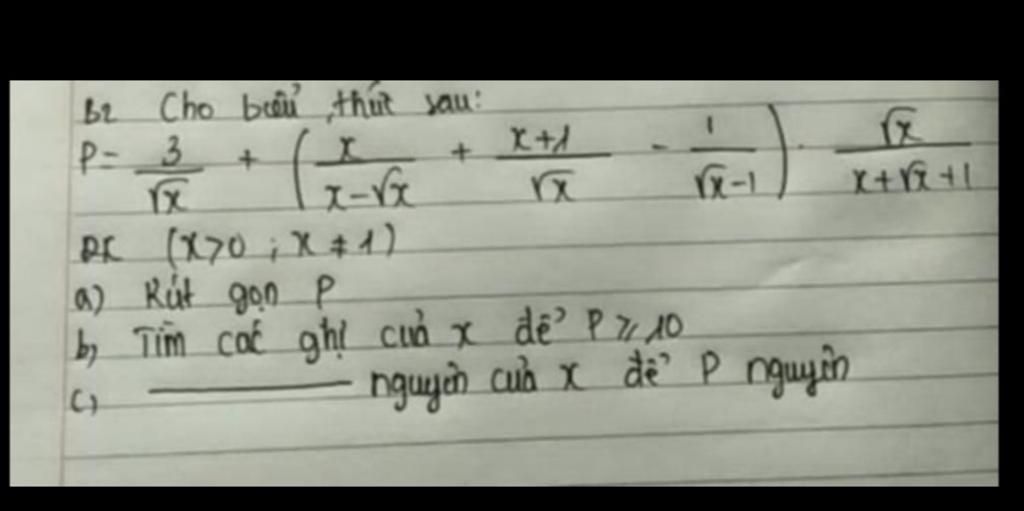 B2 Cho biểu thức sau:
P = 3/√x + (x/(x-√x) + (x+1)/√x - 1/(√x-1)) · √x/(x+√x+1)
ĐK (x>0 ; x ≠ 1)
a) Rút gọn P
b) Tìm các ghị của x để P ≥ 10
c) ——— nguyên của x để P nguyên